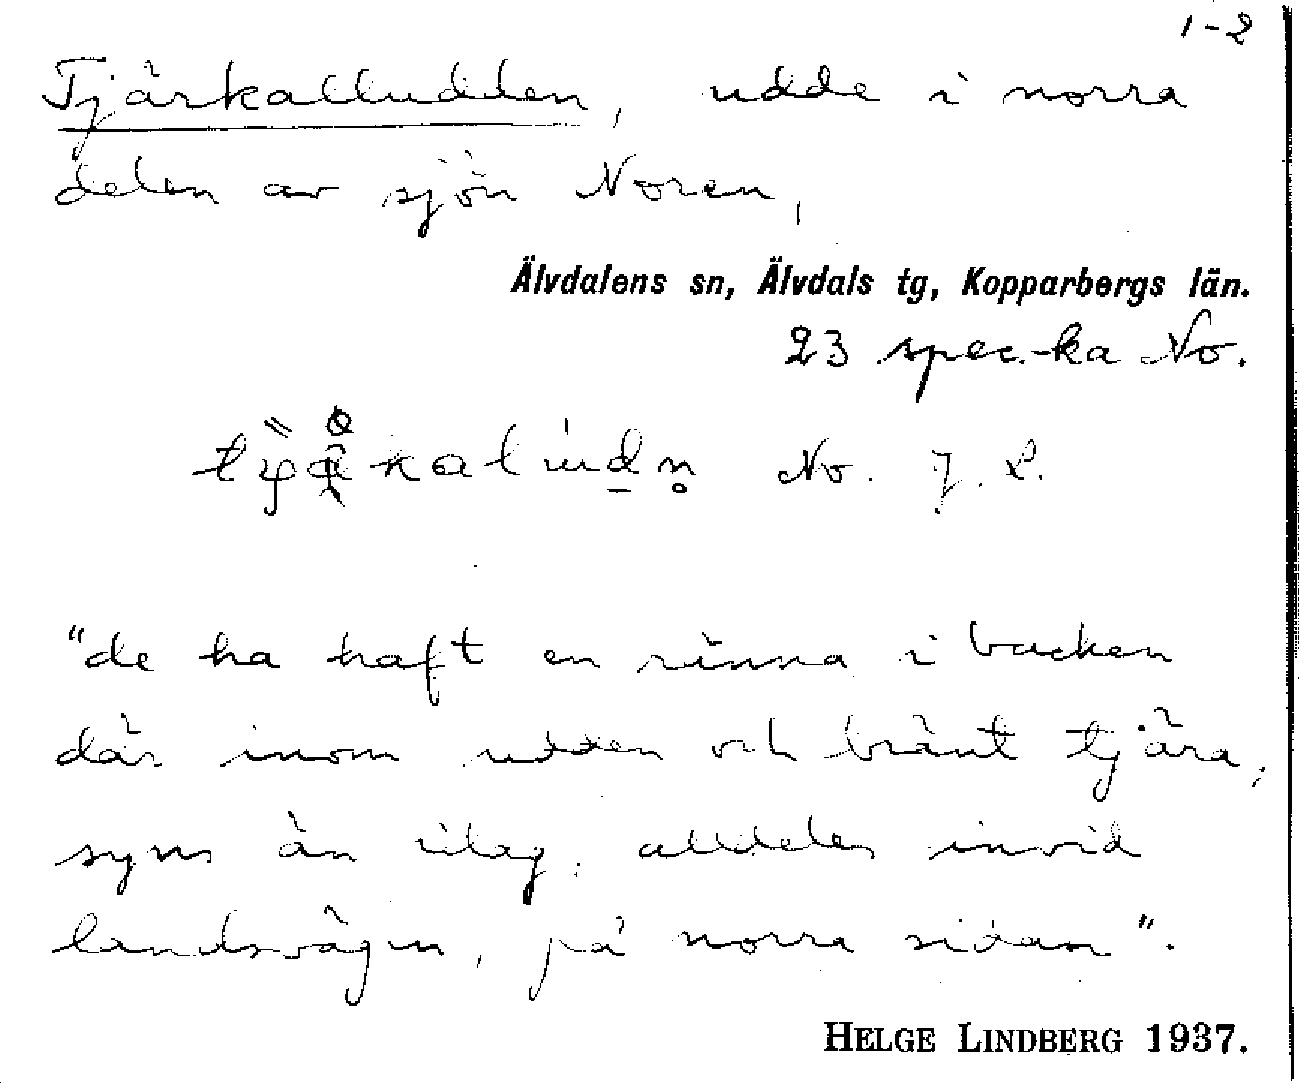 1-2
Tjärkalludden, udde i norra
delen av sjön Noren,
Älvdalens sn, Älvdals tg, Kopparbergs län.
23 spec.-ka No.
No. J. L.
"de ha haft en ränna i backen
där inom udden och bränt tjära,
syns än idag. alldeles invid
landsvägen, på norra sidan".
HELGE LINDBERG 1937.